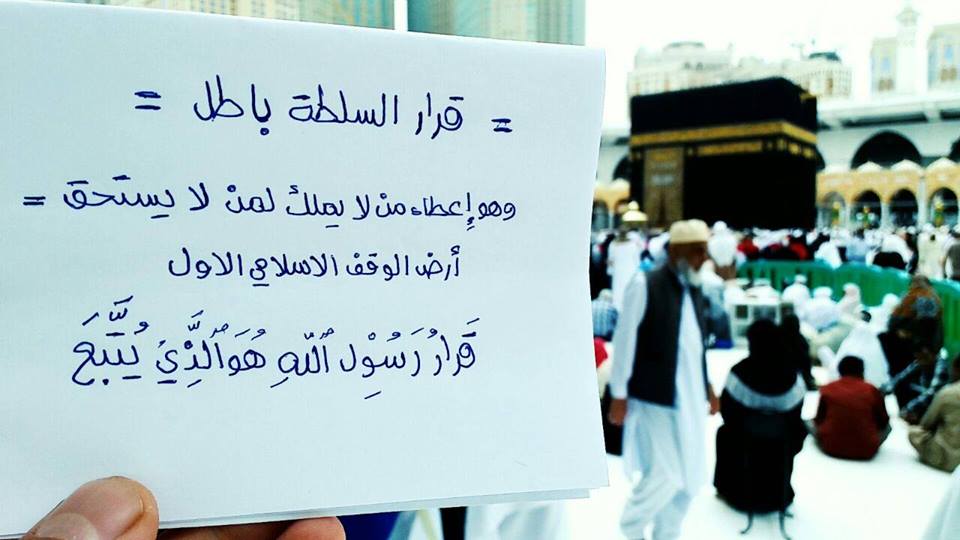 = قرار السلطة باطل =
وهو إعطاء من لا يملك لمن لا يستحق =
أرض الوقف الاسلامي الاول
قَرَارُ رَسُوْلِ اللّٰهِ هُوَ الَّذِيْ يُتَّبَعَ